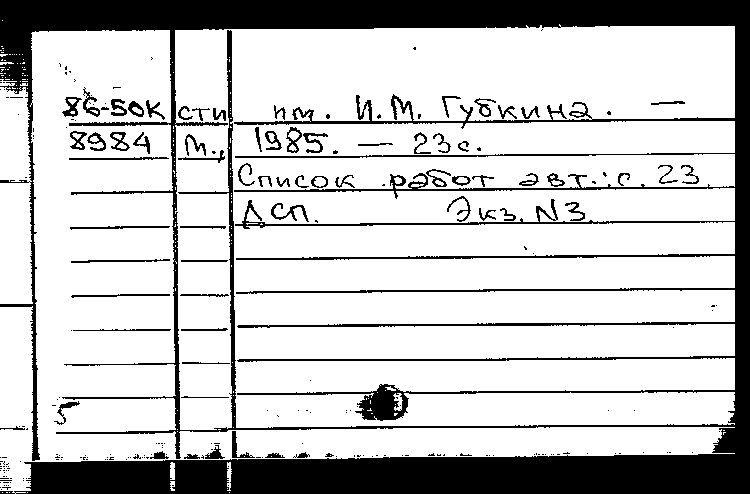 86-50К сти им. И.М. Губкина. —
8984 М., 1985. — 23 с.
Список работ авт.: с. 23.
ДСП. Экз. N3.
5